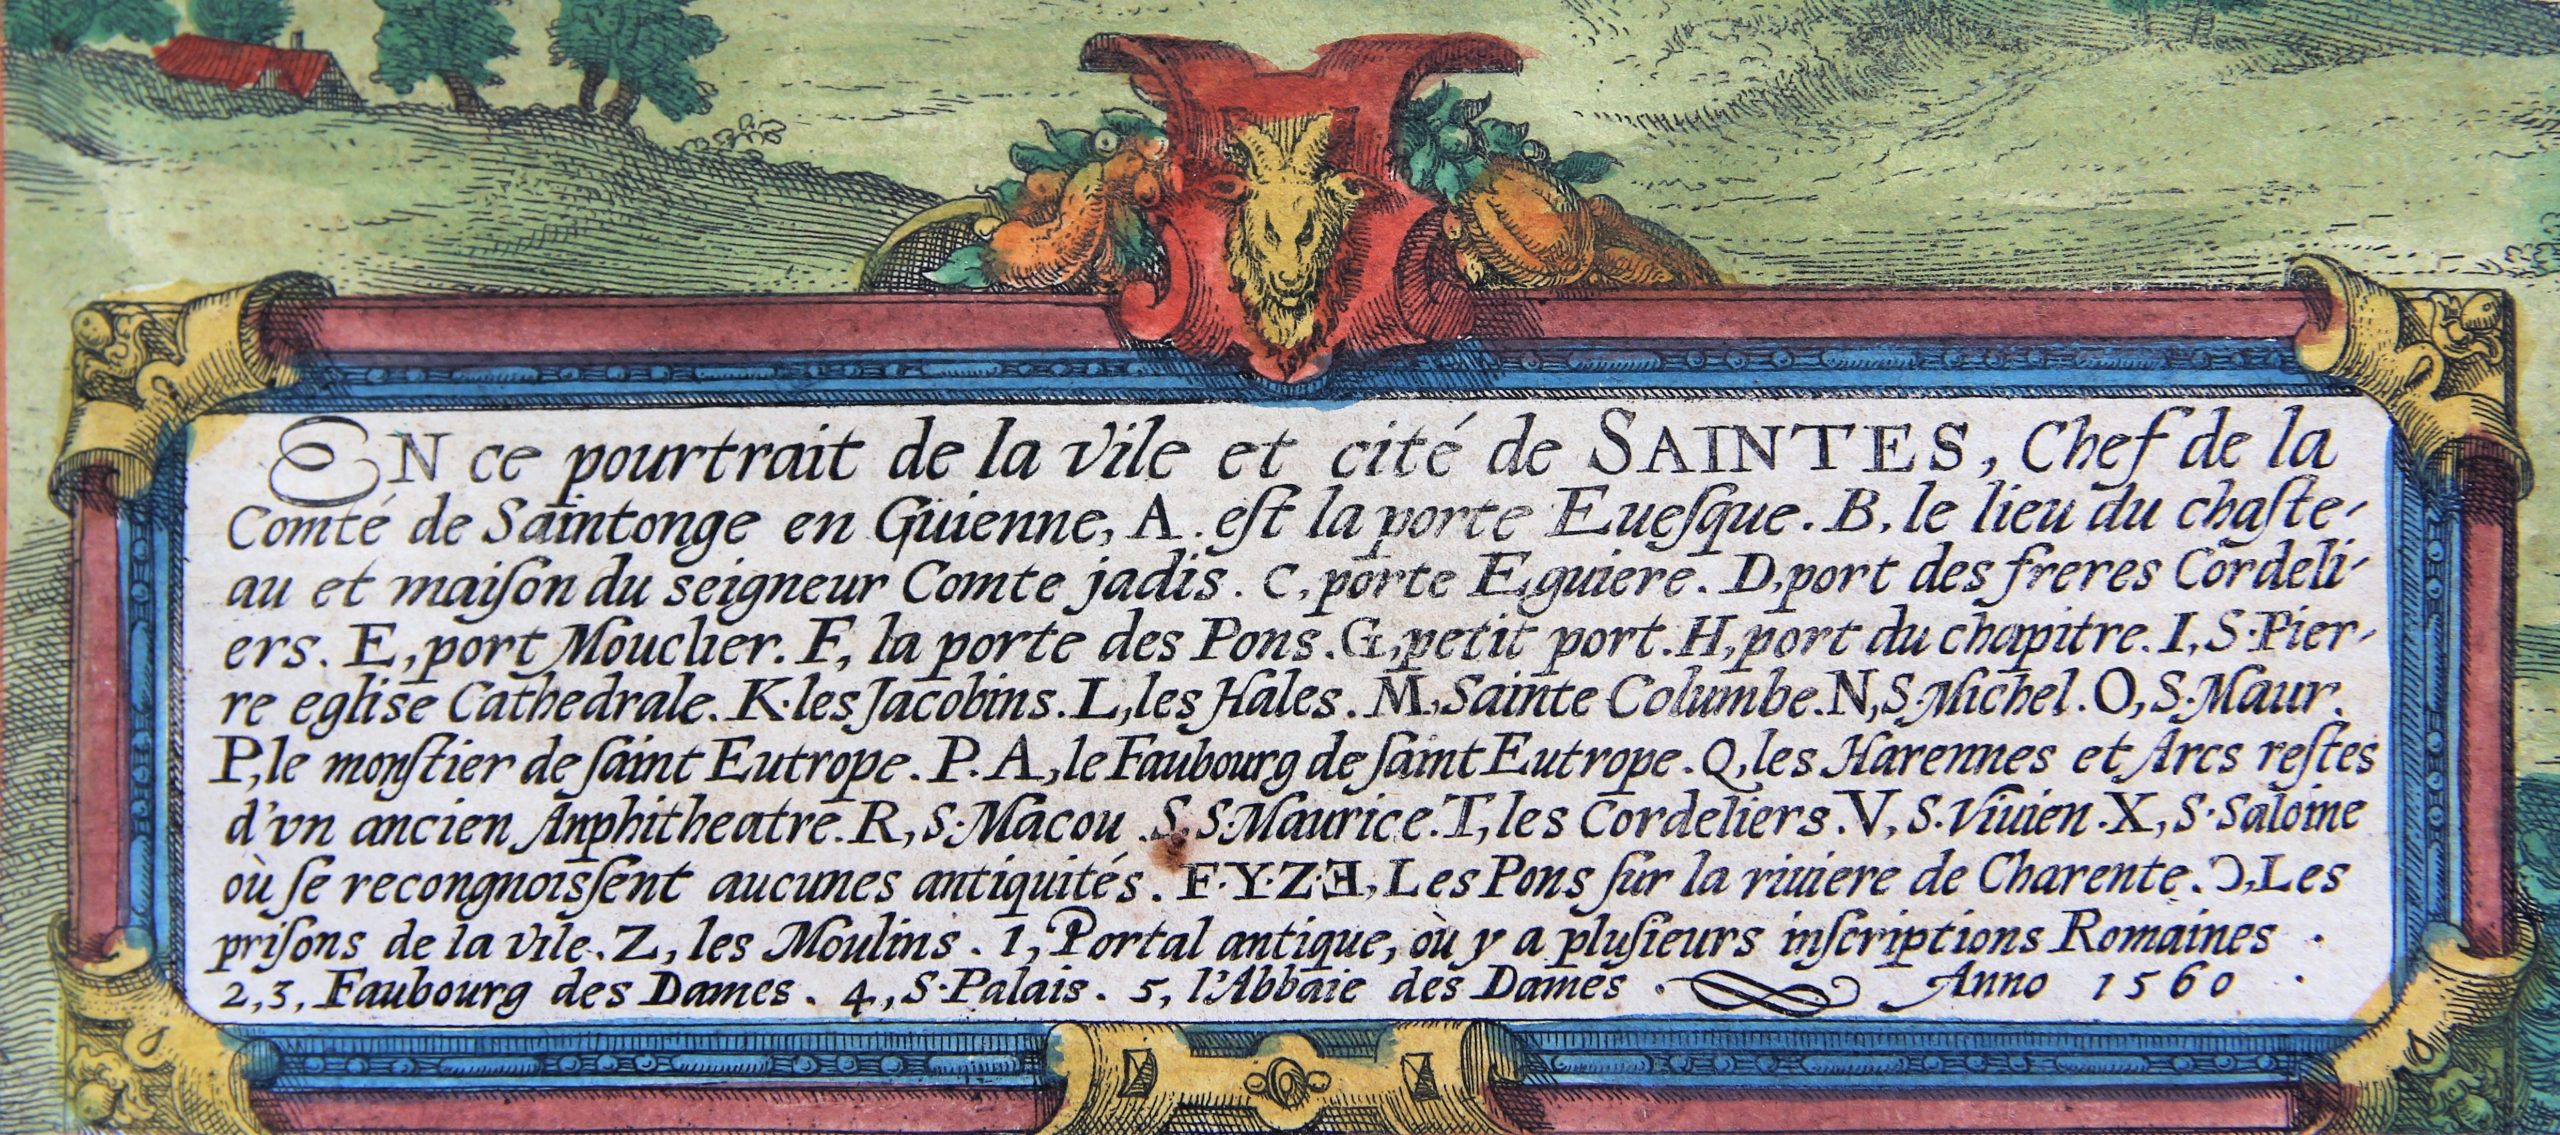 EN ce pourtrait de la vile et cité de SAINTES, Chef de la
Comté de Saintonge en Guienne, A. est la porte Euesque. B, le lieu du chaste-
au et maison du seigneur Comte jadis. C, porte Eguiere. D, port des freres Cordeli-
ers. E, port Mouclier. F, la porte des Pons. G, petit port. H, port du chapitre. I, S. Pier-
re eglise Cathedrale. K. les Jacobins. L, les Hales. M, Sainte Columbe. N, S. Michel. O, S. Maur.
P, le monstier de saint Eutrope. P. A, le Faubourg de saint Eutrope. Q, les Harennes et Arcs restes
d'vn ancien Anphitheatre. R, S. Macou. S, S. Maurice. T, les Cordeliers. V, S. Viuien. X, S. Saloine
où se recongnoissent aucunes antiquités. F. Y. Z. Ǝ, Les Pons sur la riuiere de Charente. Ɔ, Les
prisons de la vile. Z, les Moulins. 1, Portal antique, où y a plusieurs inscriptions Romaines.
2, 3, Faubourg des Dames. 4, S. Palais. 5, l'Abbaie des Dames. Anno 1560.